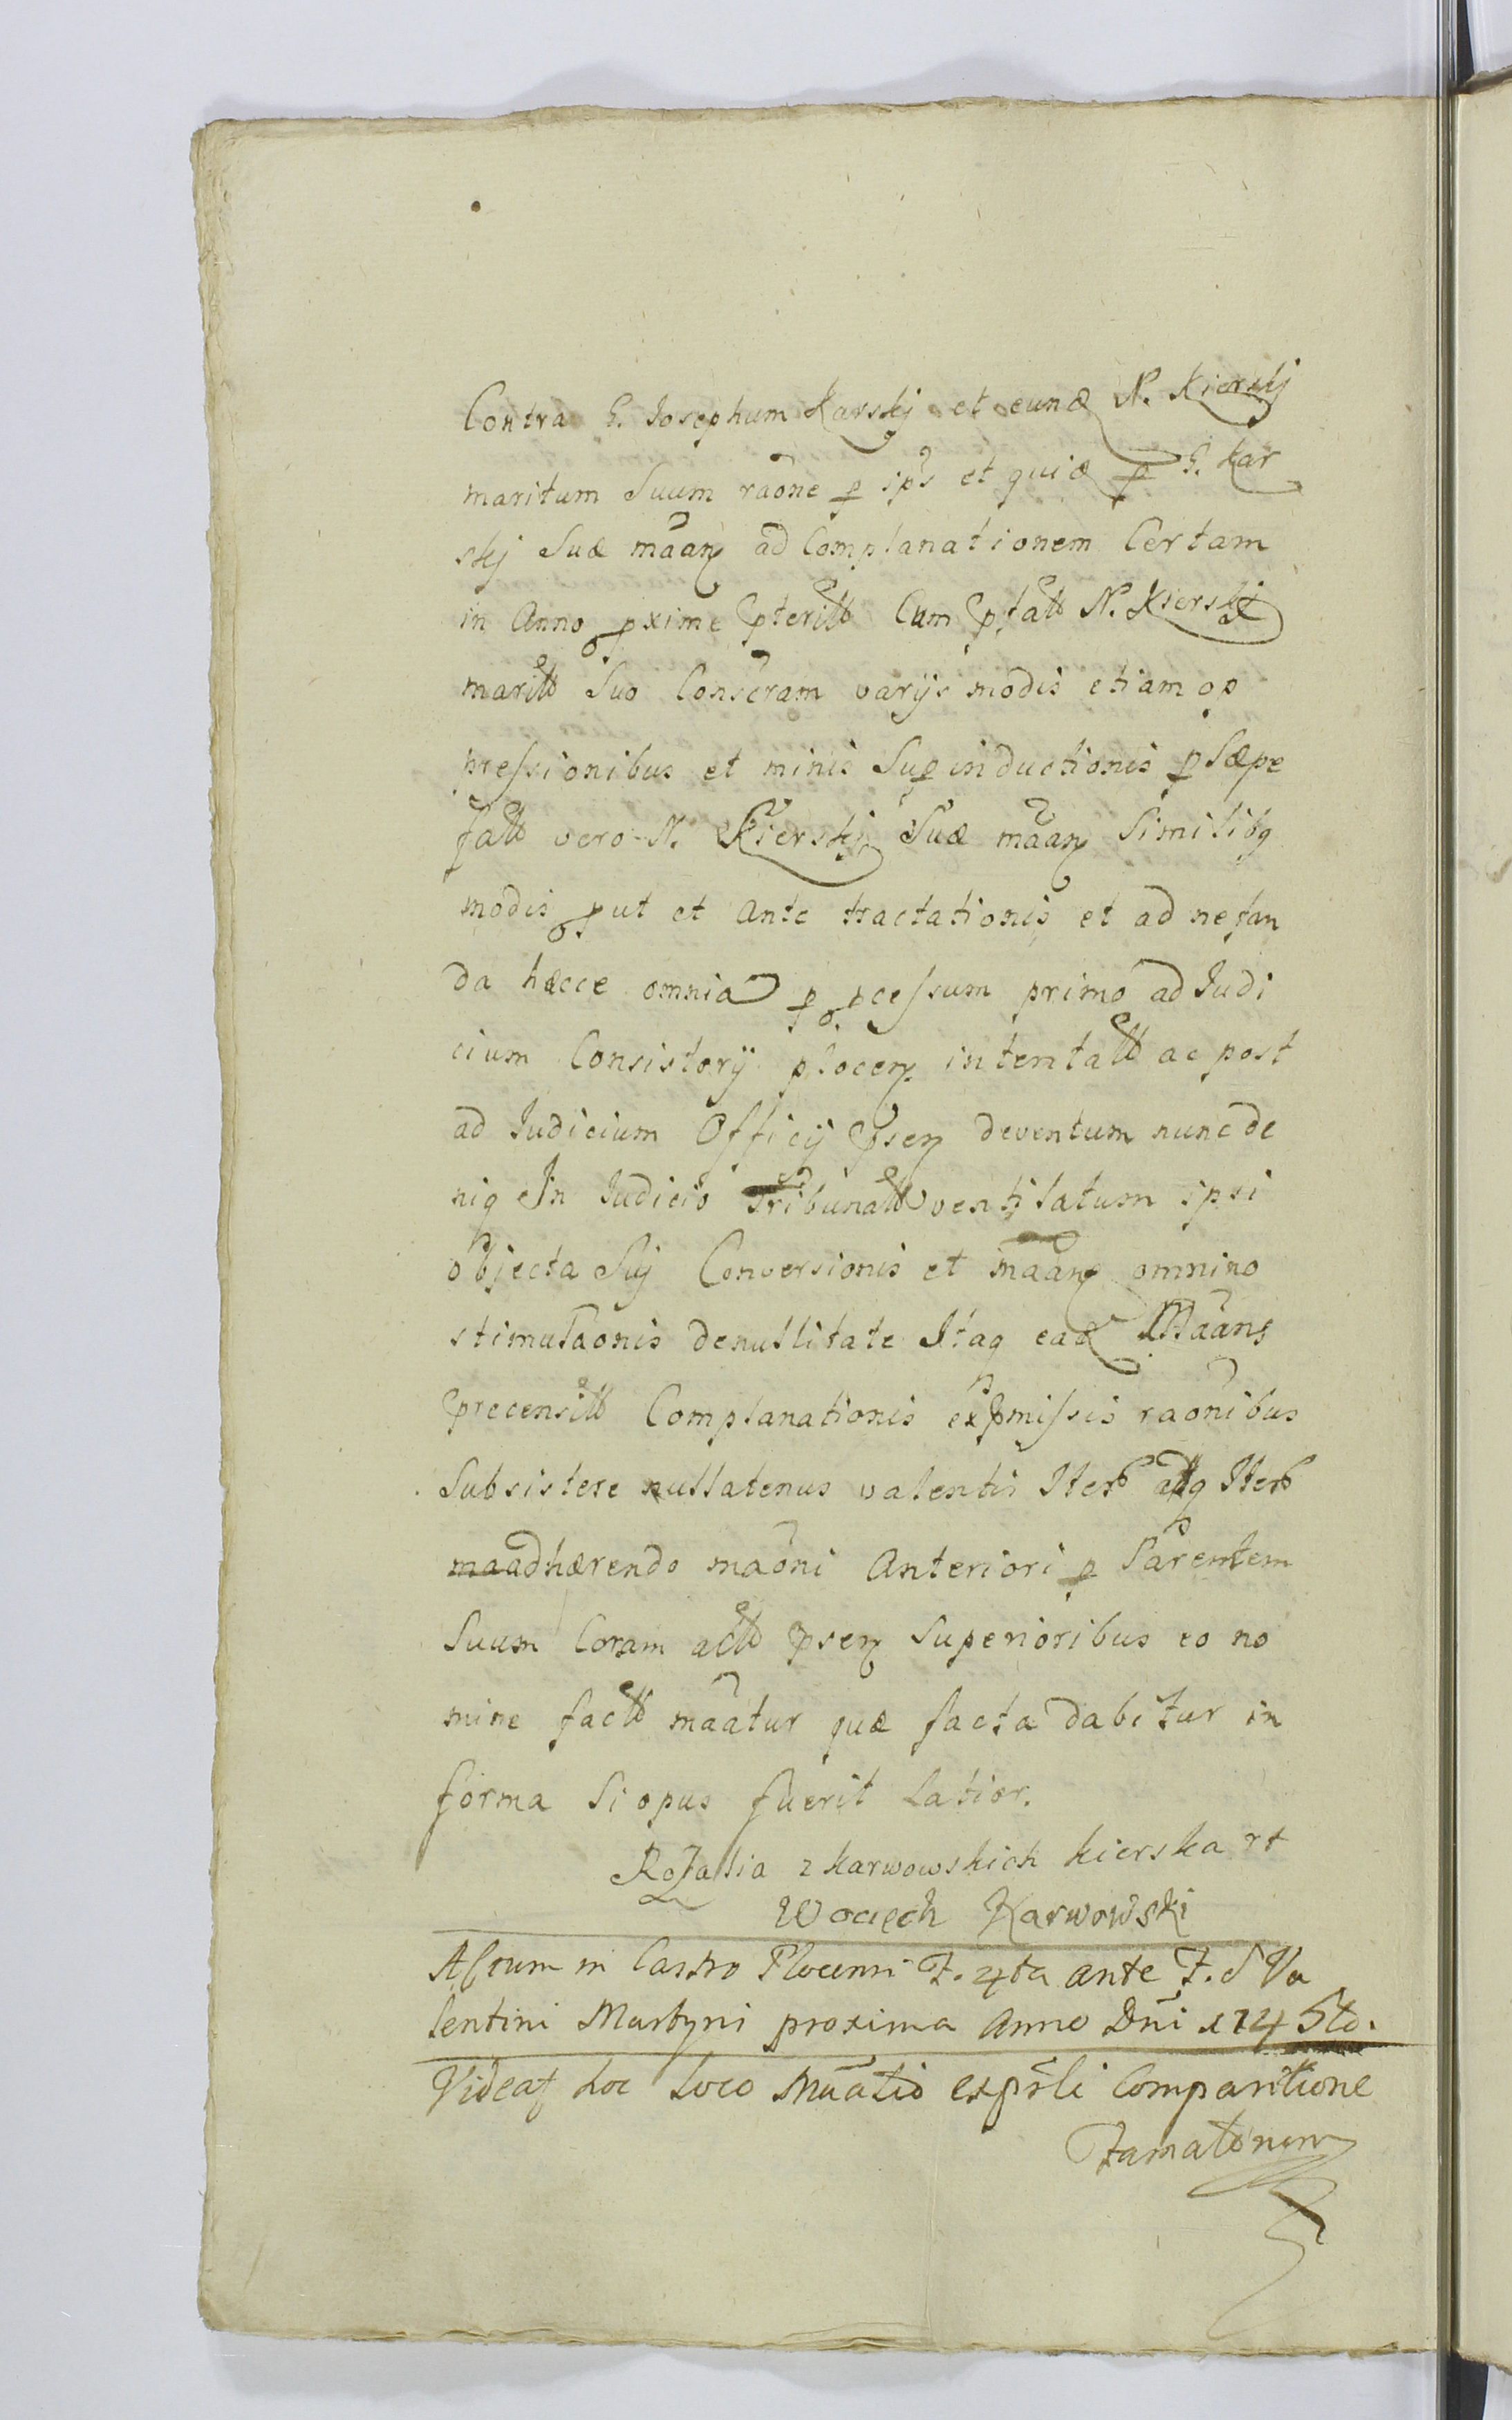 Contra G. Josephum Karskj et eund N. Kierskj
maritum Suum raõne p ips et quid p G. Kar
skj Suæ mãan ad Complanationem Certam
in Anno pxime pterito Cum pfato N. Kierskj
marito Suo Conscram varijs modis etiam op
pressionibus et minis Supinductionis p Sæpe
fato vero N. Kierskj Suæ mãan Similibq
modis put et ante tractationis et ad nefan
da hæcce omnia p pcessum primo ad Judi
cium Consistorij plocen intentato ac post
ad Judicium Officij psen deventum nunc de
niq In Judicio Tribunali ventilatum ipsi
objecta Sui Conversionis et mãan omnino
stimulãonis de nullitate Itaq ead Mãans
precensito Complanationis ex pmissis raõnibus
Subsistere nullatenus valentis Iter atq Iter
adhærendo maõni Anteriori p Parentem
Suum Coram acto psen Superioribus eo no
mine facto mãatur quæ facta dabitur in
forma Si opus fuerit Latior.
Rozallia z karwowskich kierska
Wociech Karwowski
Actum in Castro Plocensi F. 4ta ante F. S Va
lentini Martyris proxima Anno Dñi 174
Videat hoc Loco Mãatio Comparitione